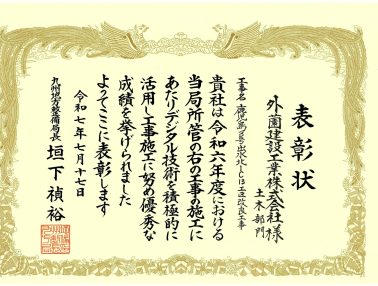 表彰状
外薗建設工業株式会社様
土木部門
貴社は令和六年度における
当局所管の右の工事の施工に
あたりデジタル技術を積極的に
活用し工事施工に努め優秀な
成績を挙げられました
よってここに表彰します
令和七年七月十七日
九州地方整備局長
垣下禎裕